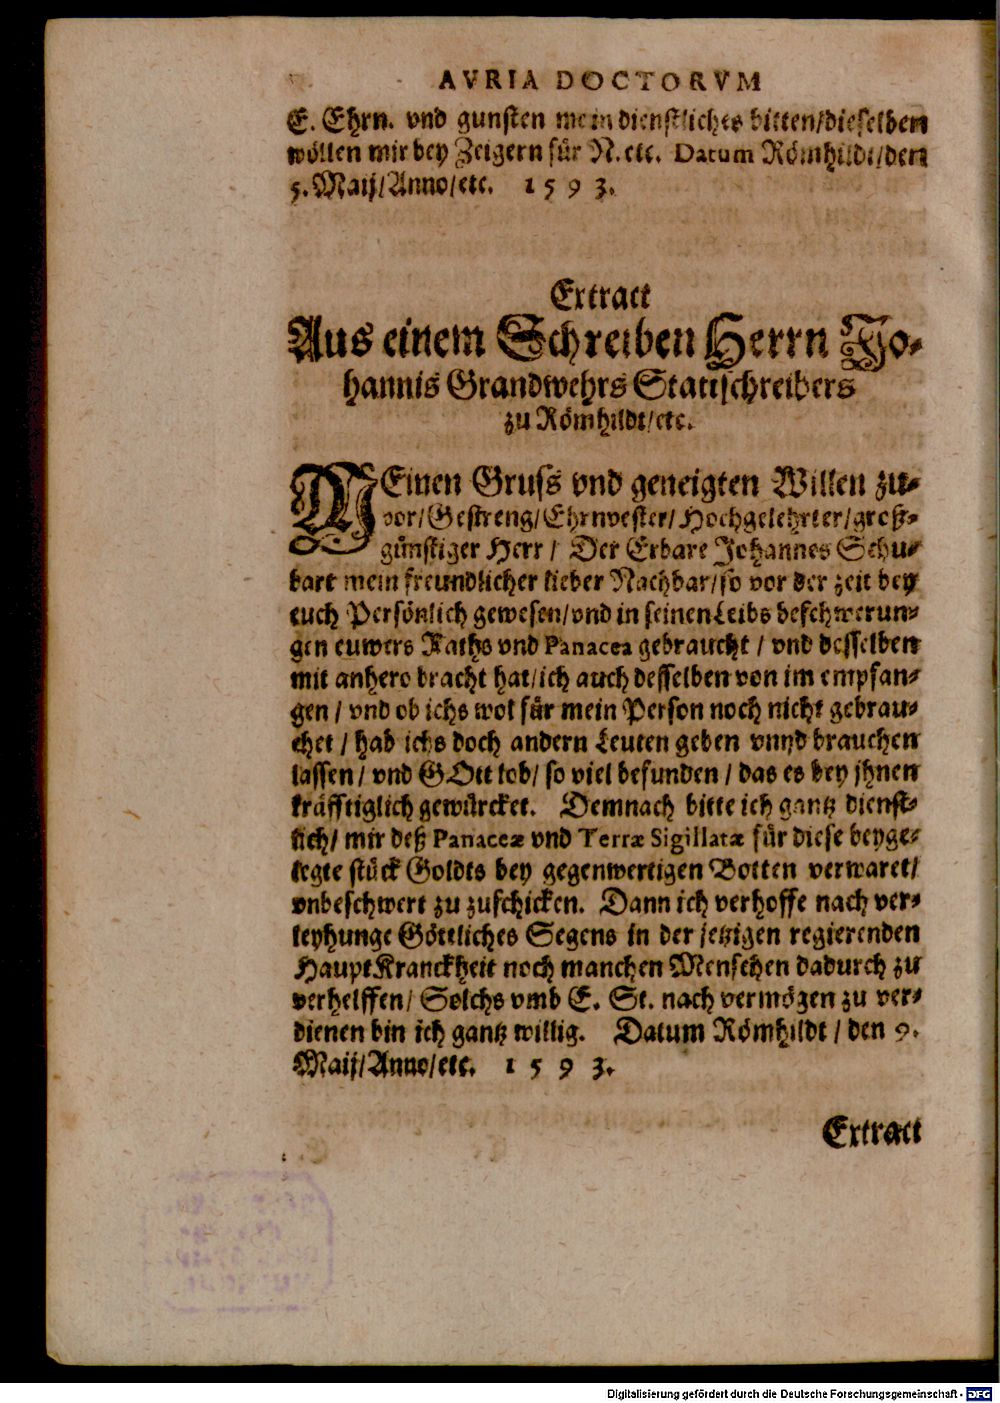 AVRIA DOCTORVM
E. Ehrn. vnd gunsten mein dienstliches bitten/dieselben
wöllen mir bey Zeigern für N. etc. Datum Römhildt/den
5. Maij/Anno/etc. 1593.
Extract
Aus einem Schreiben Herrn Jo-
hannis Grandwehrs Stattschreibers
zu Römhildt/etc.
MEinen Gruss vnd geneigten Willen zu-
vor/Gestreng/Ehrnvester/Hochgelehrter/groß-
günstiger Herr/ Der Erbare Johannes Schu-
bart mein freundlicher lieber Nachbar/so vor der zeit bey
euch Persönlich gewesen/vnd in seinen Leibs beschwerun-
gen euwers Raths vnd Panacea gebraucht/ vnd desselben
mit anhero bracht hat/ich auch desselben von im empfan-
gen/ vnd ob ichs wol für mein Person noch nicht gebrau-
chet/ hab ichs doch andern Leuten geben vnnd brauchen
lassen/ vnd GOtt lob/ so viel befunden/ das es bey jhnen
kräfftiglich gewürcket. Demnach bitte ich gantz dienst-
lich/ mir deß Panaceæ vnd Terræ Sigillatæ für diese beyge-
legte stück Goldts bey gegenwertigen Botten verwaret/
vnbeschwert zu zuschicken. Dann ich verhoffe nach ver-
leyhunge Göttliches Segens in der jetzigen regierenden
HauptKranckheit noch manchen Menschen dadurch zu
verhelffen/ Solchs vmb E. St. nach vermögen zu ver-
dienen bin ich gantz willig. Datum Römhildt/ den 9.
Maij/Anno/etc. 1593.
Extract
Digitalisierung gefördert durch die Deutsche Forschungsgemeinschaft - DFG